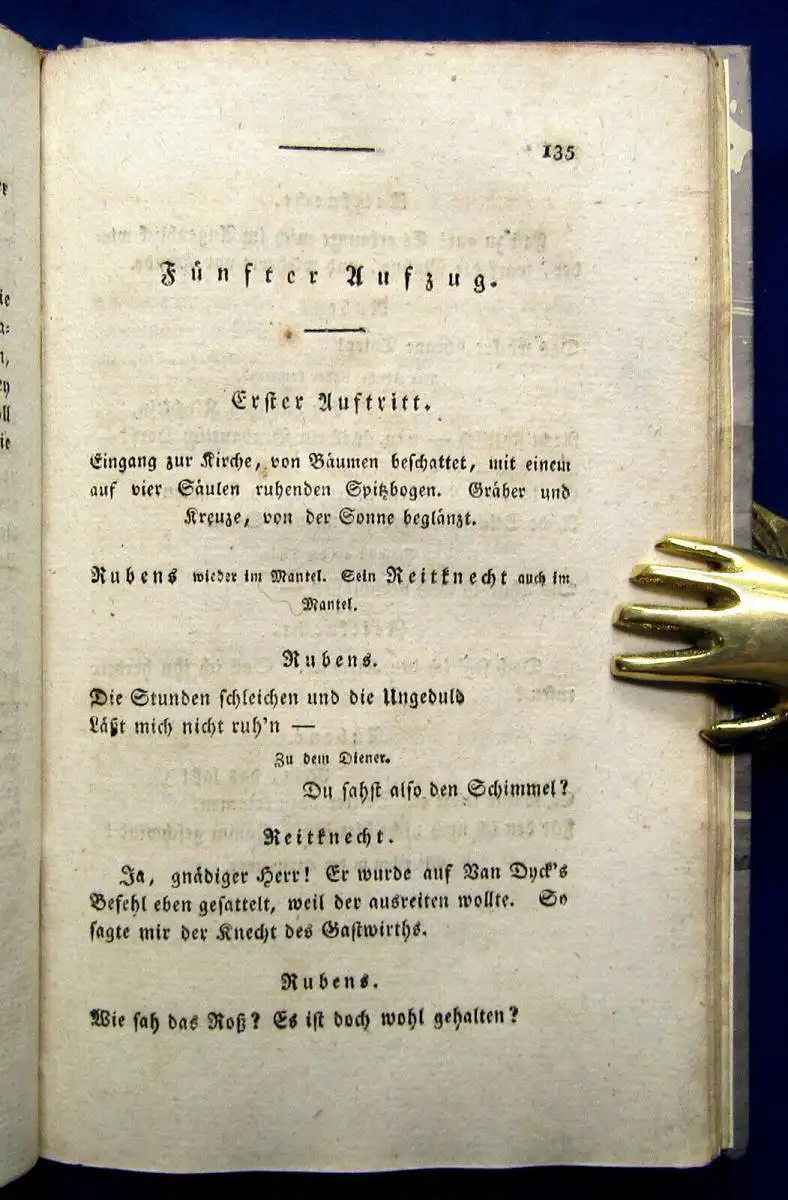 135
Fünfter Aufzug.
Erster Auftritt.
Eingang zur Kirche, von Bäumen beschattet, mit einem
auf vier Säulen ruhenden Spitzbogen. Gräber und
Kreuze, von der Sonne beglänzt.
Rubens wieder im Mantel. Sein Reitknecht auch im
Mantel.
Rubens.
Die Stunden schleichen und die Ungeduld
Läßt mich nicht ruh'n —
Zu dem Diener.
Du sahst also den Schimmel?
Reitknecht.
Ja, gnädiger Herr! Er wurde auf Van Dyck's
Befehl eben gesattelt, weil der ausreiten wollte. So
sagte mir der Knecht des Gastwirths.
Rubens.
Wie sah das Roß? Es ist doch wohl gehalten?